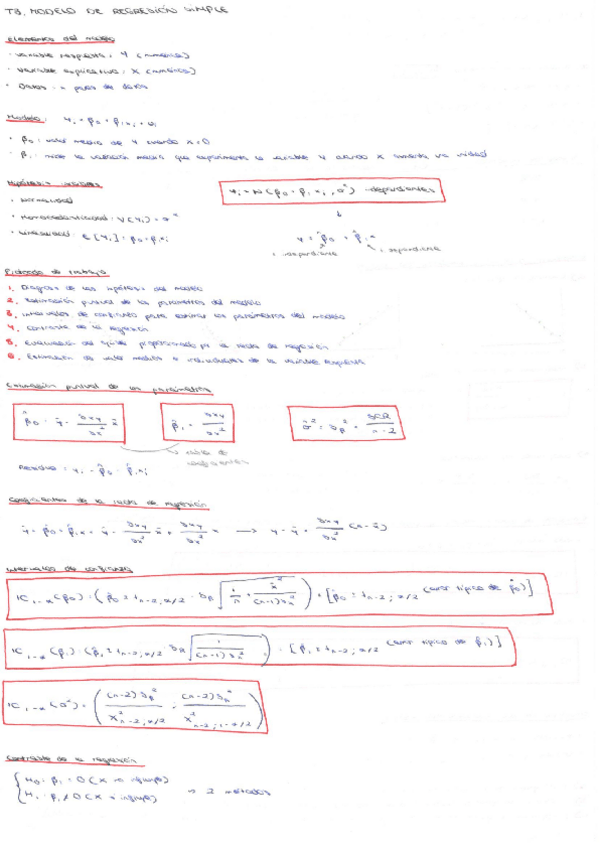 T3. MODELO DE REGRESIÓN SIMPLE
Elementos del modelo
· Variable respuesta: Y (numérica)
· Variable explicativa: X (numérica)
· Datos: n pares de datos
Modelo: Yi = β0 + β1xi + Ui
· β0: valor medio de Y cuando x=0
· β1: mide la variación media que experimenta la variable Y cuando X aumenta una unidad
Hipótesis
Yi ~ N(β0 + β1xi, σ²) independientes
· Normalidad
· Homocedasticidad: V(Yi) = σ²
· Linealidad: E[Yi] = β0 + β1xi
Y = β̂0 + β̂1x
Protocolo de trabajo
1. Diagnosis de las hipótesis del modelo
2. Estimación puntual de los parámetros del modelo
3. Intervalos de confianza para estimar los parámetros del modelo
4. Contraste de la regresión
5. Evaluación del ajuste proporcionado por la recta de regresión
6. Estimación de valor medio o individuales de la variable respuesta
Estimación puntual de los parámetros
β̂0 = ȳ - Sxy/Sx² x̄
β̂1 = Sxy/Sx²
σ̂² = SR² = SCR/n-2
Residuos: yi - β̂0 - β̂1xi
Coeficientes de la recta de regresión
ŷ = β̂0 + β̂1x = ȳ - Sxy/Sx² x̄ + Sxy/Sx² x → y - ȳ = Sxy/Sx² (x-x̄)
Intervalos de confianza
IC1-α(β0) = (β̂0 ± tn-2;α/2 · SR √(1/n + x̄²/(n-1)Sx²)) = [β̂0 ± tn-2;α/2 (error típico de β̂0)]
IC1-α(β1) = (β̂1 ± tn-2;α/2 · SR √(1/(n-1)Sx²)) = [β̂1 ± tn-2;α/2 (error típico de β̂1)]
IC1-α(σ²) = ((n-2)SR²/χ²n-2;α/2 ; (n-2)SR²/χ²n-2;1-α/2)
Contraste de la regresión
H0: β1 = 0 (X no influye)
H1: β1 ≠ 0 (X influye) → 2 métodos